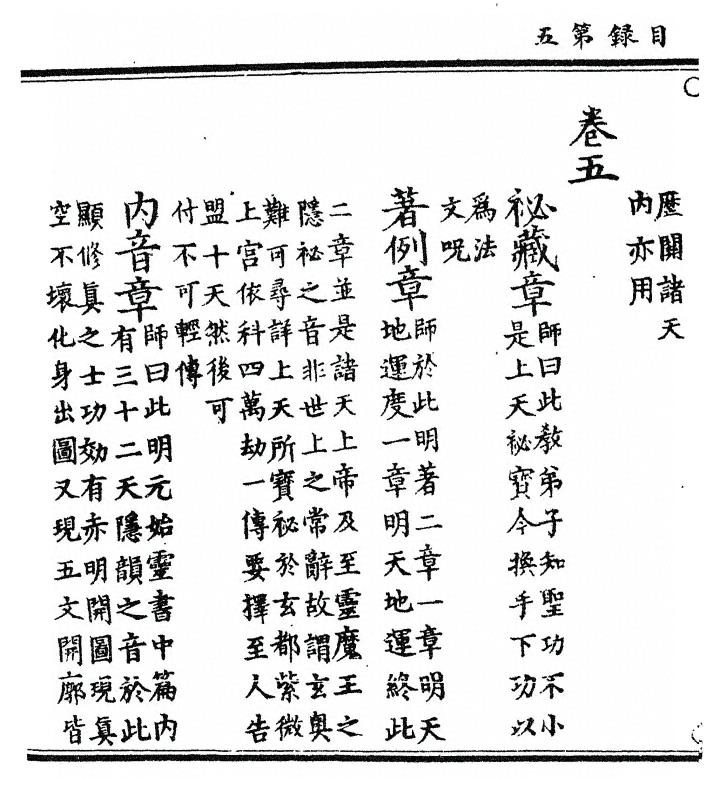 目錄第五
歴開諸天
內亦用
卷五
祕藏章
師曰此教弟子知聖功不小
是上天祕寶今換手下功以
爲法
文呪
著例章
師於此明著二章一章明天
地運度一章明天地運終此
二章並是諸天上帝及至靈魔王之
隱祕之音非世上之常辭故謂玄奧
難可尋詳上天所寶祕於玄都紫微
上宮依科四萬劫一傳要擇至人告
盟十天然後可
付不可輕傳
內音章
師曰此明元始靈書中篇內
有三十二天隱韻之音於此
顯修真之士功効有赤明開圖現眞
空不壞化身出圖又現五文開廓皆